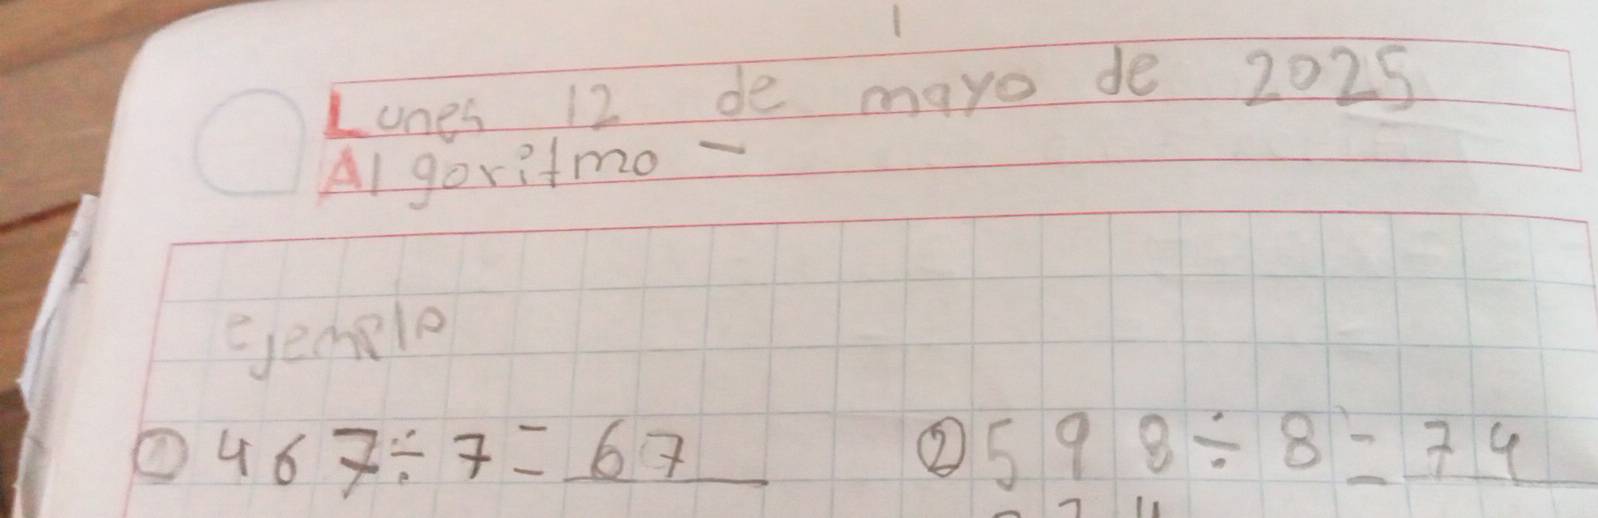 1
Lunes 12 de mayo de 2025
Algoritmo -
ejemplo
① 467÷7=67 ② 598÷8=74